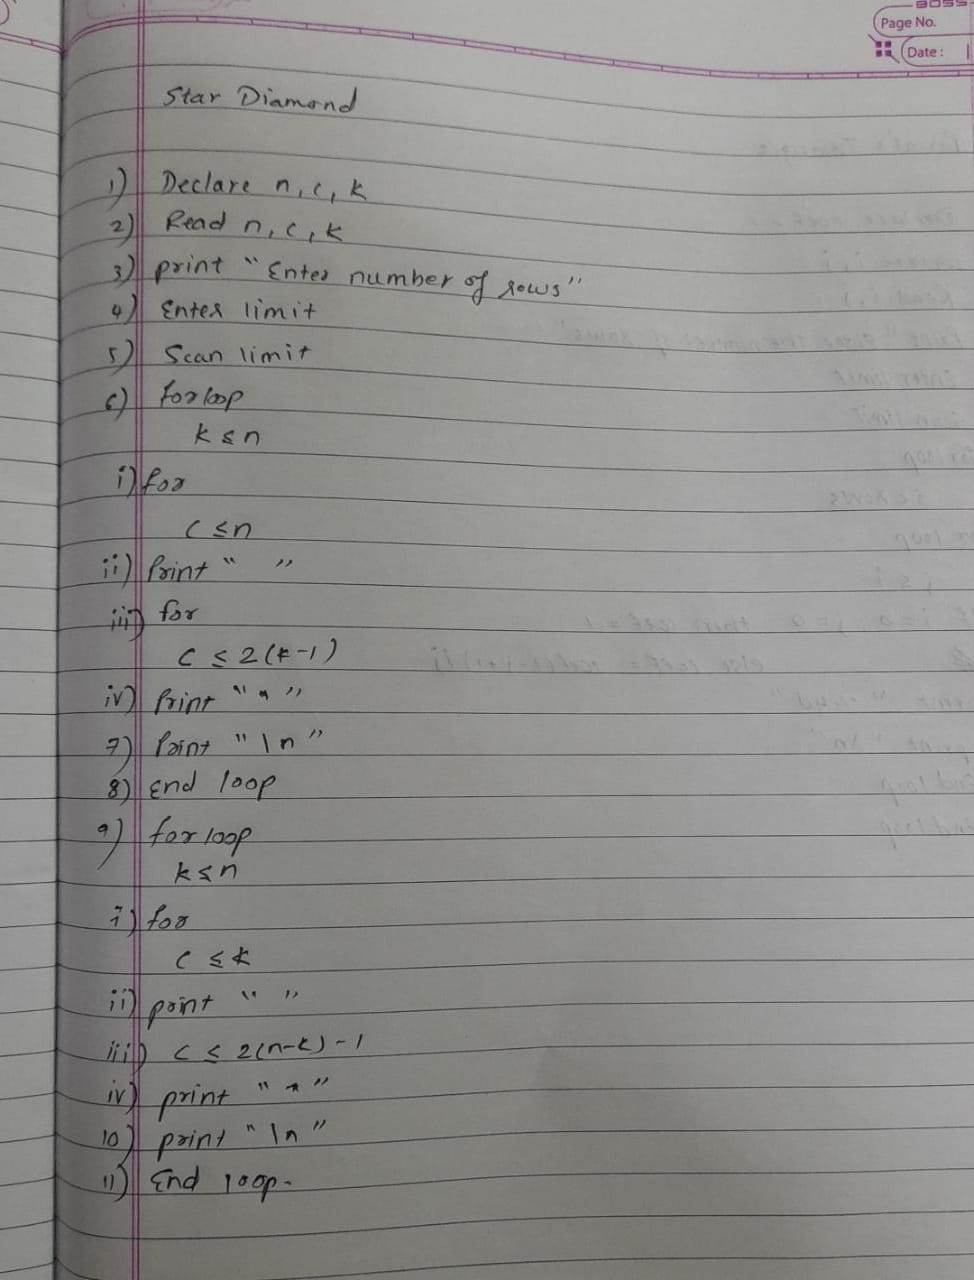 BOSS
Page No.
Date :
Star Diamond
1) Declare n, c, k
2) Read n, c, k
3) print "Enter number of rows"
4) Enter limit
5) Scan limit
6) for loop
k ≤ n
i) for
c ≤ n
ii) Print " "
iii) for
c ≤ 2(k-1)
iv) Print "*"
7) Print "\n"
8) End loop
9) for loop
k ≤ n
i) for
c ≤ k
ii) print " "
iii) c ≤ 2(n-k)-1
iv) print "*"
10) print "\n"
11) End loop.